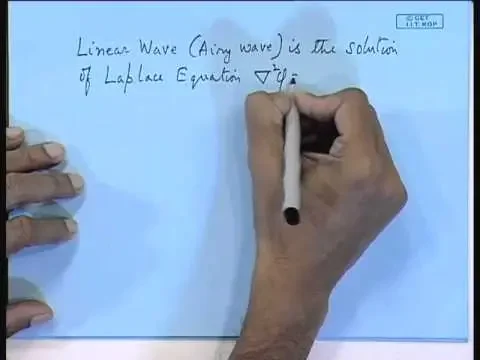 © CET
I.I.T. KGP
Linear Wave (Airy wave) is the solution
of Laplace Equation ∇²φ =